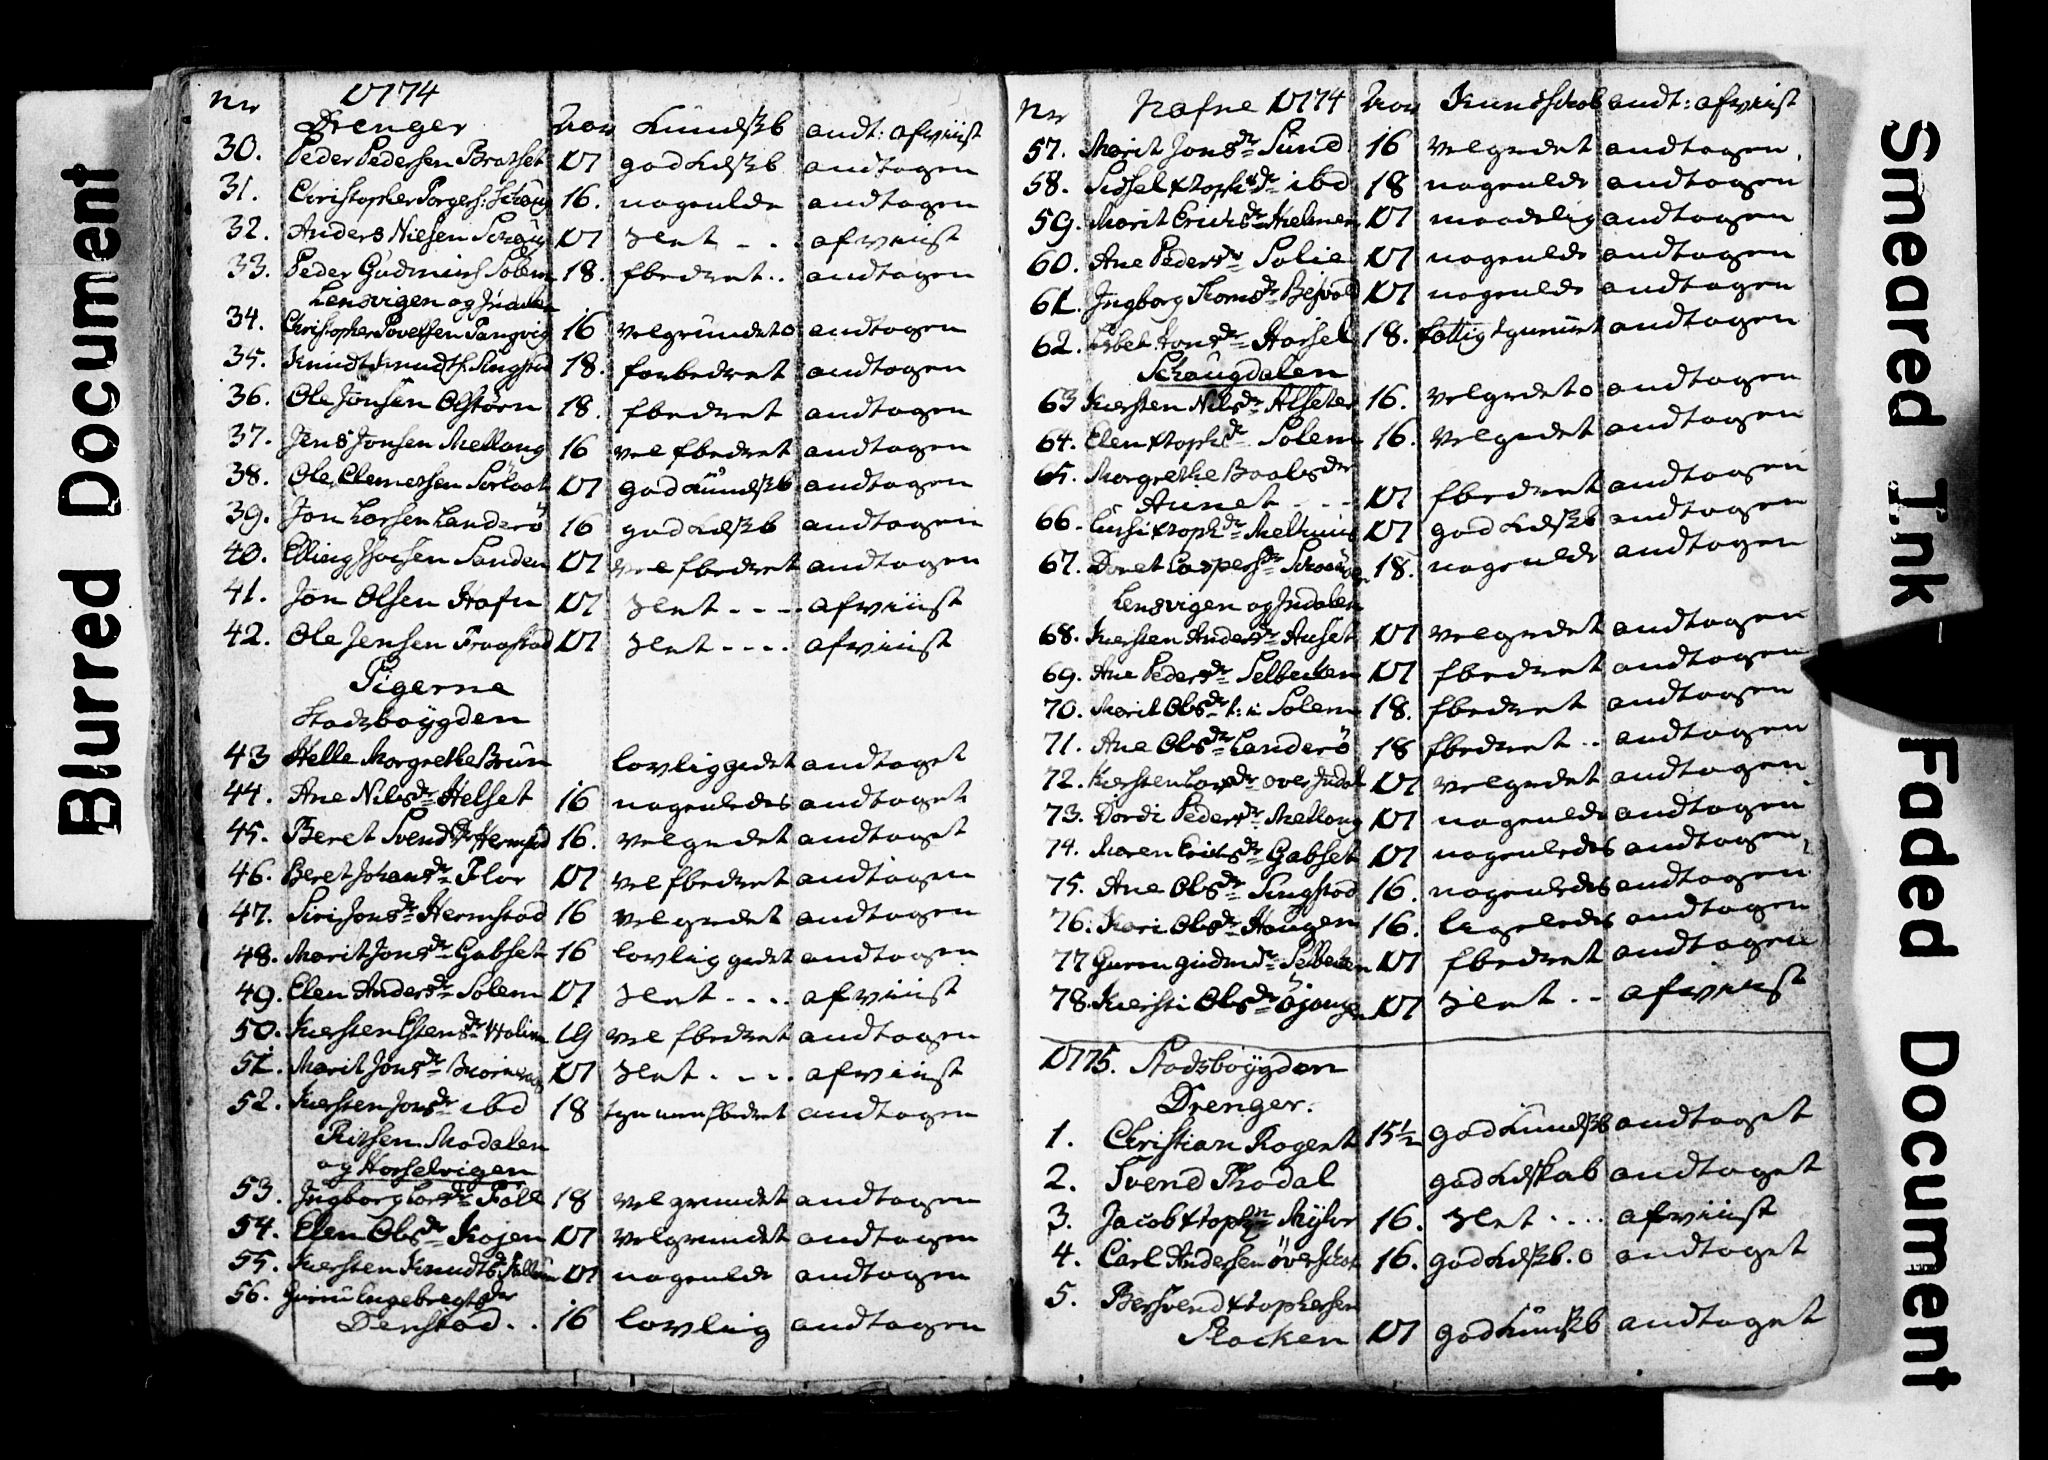 Blurred Document
nr 1774
Drenger Aar Kundskb andt: afviist
30. Peder Pedersen Bratset 17 god Kdskb andtagen
31. Christopher Torgers: Schaug 16. nogenlde andtagen
32. Anders Nielsen Schaug 17 slet - - . afviist
33. Peder Gudmins Solem 18. fbedret . . andtagen
Lensvigen og Indalen
34. Christopher Povelsen Tangvig 16 velgrundet o andtagen
35. Knudt Knudts: Singstad 18. forbedret andtagen
36. Ole Jonsen Olstøren 18. fbedret andtagen
37. Jens Jonsen Mellong 16 vel fbedret andtagen
38. Ole Clemetsen Sørloot 17 god Kundskb andtagen
39. Jon Larsen Landerö 16 god Kdskb andtagen
40. Elling Sanden 17 vel fbedret andtagen
41. Jon Olsen Hafn 17 slet - - - - afviist
42. Ole Jensen Fraastad 17 slet - - - - afviist
Pigerne
Stadsboÿgden
43 Helle Margrethe Brun lovlig gedet andtaget
44. Ane Nilsdr Helset 16 nogenledes andtaget
45. Beret Svendsdr Hermstad 16. velgrdet andtaget
46. Beret Johansdr Flor 17 vel fbedret andtagen
47. Siri Jonsdr Hermstad 16 velgrdet andtagen
48. Marit Jonsdr Gabset 16 lovlig gedet andtagen
49. Elen Andersdr Solem 17 slet - - . . afviist
50. Kiersten Estensdr Holiem 19 vel fbedret andtagen
51. Marit Jonsdr 17 slet . - - . afviist
52. Kiersten Jonsdr ibd 18 fbedret andtagen
Ritsen Modalen
og Horselvigen
53. Ingborg Larsdr Foll 18 velgrundet andtagen
54. Elen Olsdr Kojen 17 velgrundet andtagen
55. Kiersten Knudtsdr 17 nogenlde andtagen
56. Guru Engebregtsdr
Denstad . . 16 lovlig andtagen
nr Nafne 1774 Aar Kundskab andt: afviist
57. Marit Jonsdr Sund 16 velgrdet andtagen.
58. Sidsel Xtophdr ibd 18 nogenlde andtagen
59. Marit Ericksdr Hielmen 17 maadelig andtagen
60. Ane Pedersdr Solie 17 nogenlde andtagen
61. Ingborg Thomsdr 17 nogenlde andtagen
62. Lisbet Jonsdr Horsel 18. fattig andtagen
Schaugdalen
63 Kiersten Nilsdr Alseter 16. velgrdet o andtagen
64. Elen Xtophdr Solem 16. velgrdet andtagen
65. Margrethe Boolsdr
Aunet - . - - 17 fbedret andtagen
66. Xtophdr 17 god Kdskb andtagen
67. Doret Caspersdr 18. nogenlde andtagen
Lensvigen og Indalen
68. Kiersten Andersdr Auset 17 velgrdet andtagen
69. Ane Pedersdr Selbecken 17 fbedret andtagen
70. Marit Olsdr Solem 18. fbedret andtagen
71. Ane Olsdr Landerö 18 fbedret . . andtagen
72. Kiersten Larsdr over Indal 17 velgrdet andtagen
73. Dordi Pedersdr Mellong 17 nogenlde andtagen
74. Maren Ericksdr Gabset 17 nogenledes andtagen
75. Ane Olsdr Singstad 16. nogenledes andtagen
76. Kari Olsdr Haugen 16. ligeledes andtagen
77 Guren Gudmdr Selbecken 17 fbedret andtagen
78. Kiersti Olsdr 17 slet . . afviist
1775. Stadsboÿgden
Drenger.
1. Christian Rogert 15½ god Kundskb andtaget
2. Svend Rodal god Kdskab andtaget
3. Jacob Xtophsn Myhr 16. slet . . . . afviist
4. Carl Andersen överskot 16. god Kdskb. o andtaget
5. Bersvend Xtophersen
Stocken 17 god Kundskb andtaget
Smeared Ink
Faded Document